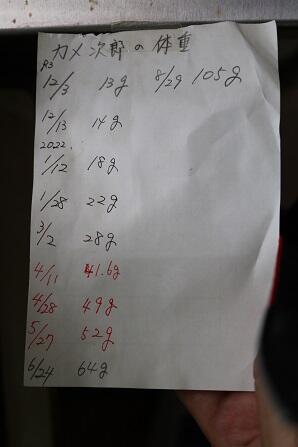 カメ次郎の体重
R3
12/3 13g 8/29 105g
12/13 14g
2022.
1/12 18g
1/28 22g
3/2 28g
4/11 41.6g
4/28 49g
5/27 52g
6/24 64g